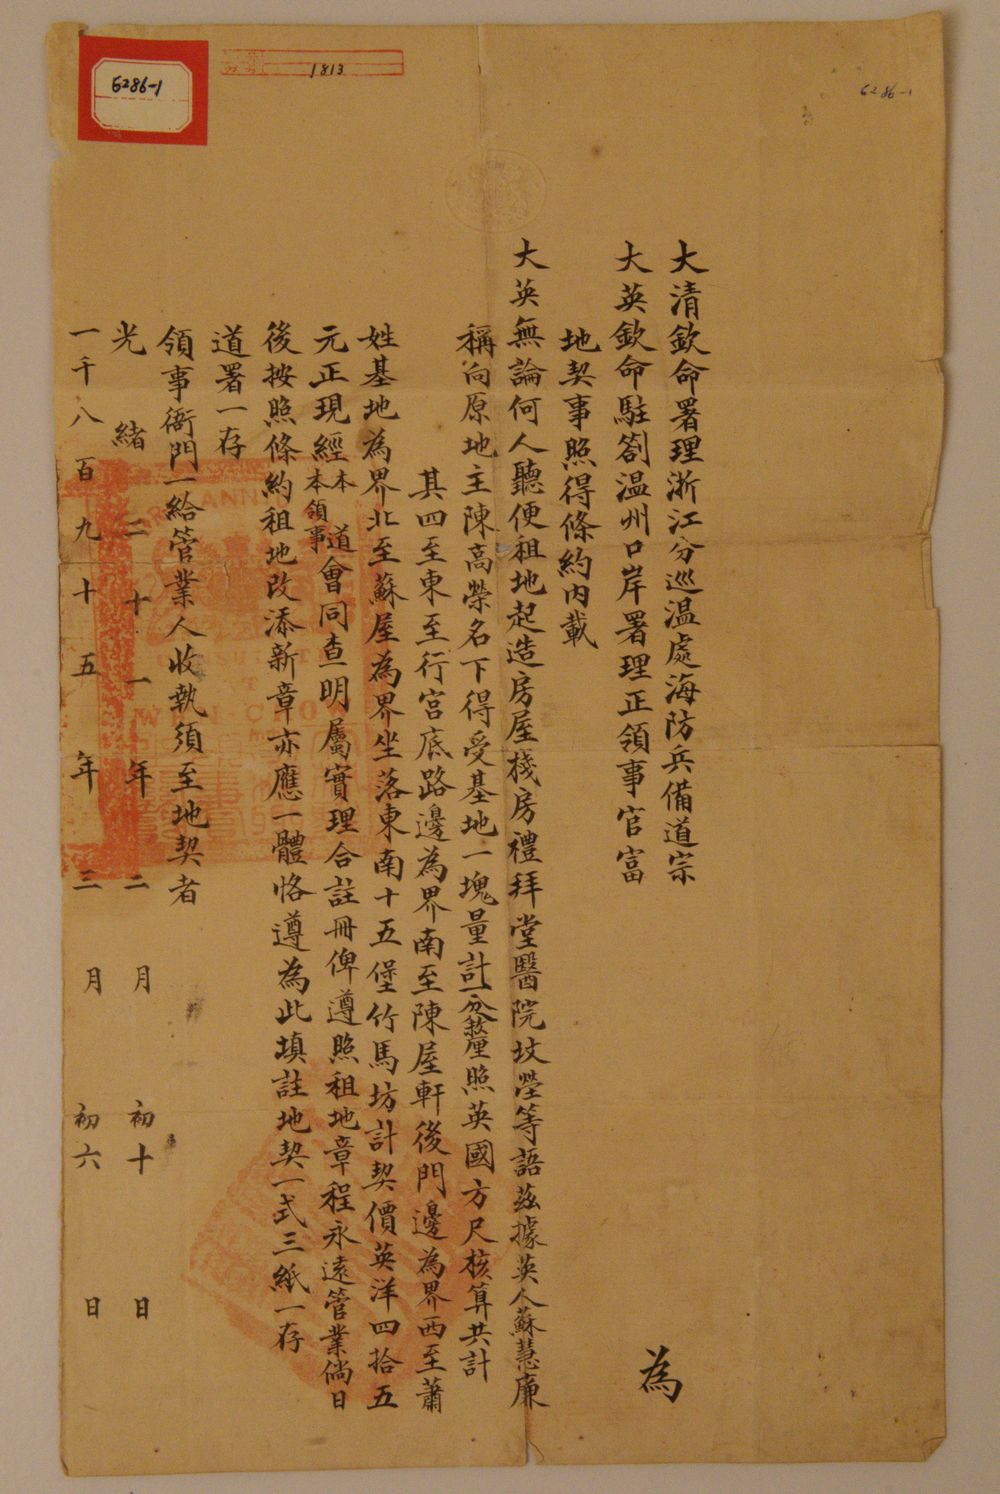 6286-1
1813
6286-1
大清欽命署理浙江分巡温處海防兵備道宗
大英欽命駐劄温州口岸署理正領事官富
為
地契事照得條約內載
大英無論何人聽便租地起造房屋棧房禮拜堂醫院坟塋等語茲據英人蘇慧廉
稱向原地主陳高榮名下得受基地一塊量計一分釐照英國方尺核算共計
其四至東至行宮底路邊為界南至陳屋軒後門邊為界西至蕭
姓基地為界北至蘇屋為界坐落東南十五堡竹馬坊計契價英洋四拾五
元正現經本道本領事會同查明屬實理合註冊俾遵照租地章程永遠管業倘日
後按照條約租地改添新章亦應一體恪遵為此填註地契一式三紙一存
道署一存
領事衙門一給管業人收執須至地契者
光緒二十一年二月初十日
一千八百九十五年三月初六日
WEN-CHOW